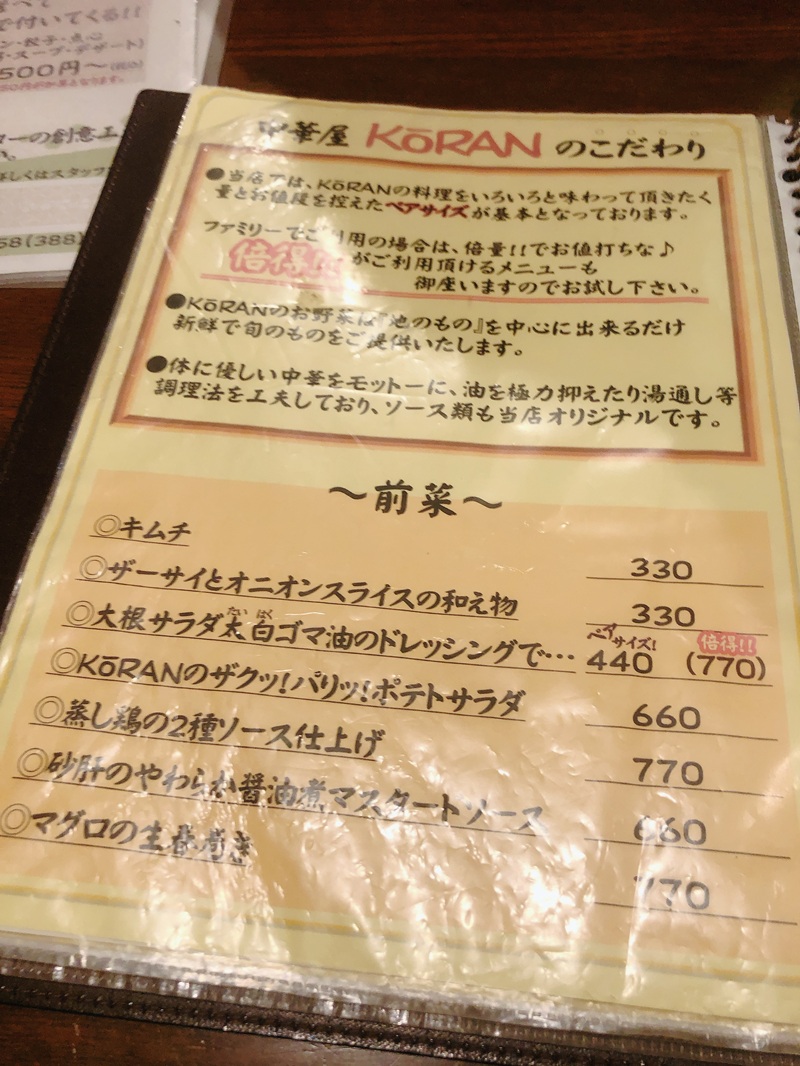 で付いてくる!!
500円〜
58(388)
中華屋 KōRAN のこだわり
●当店では、KōRANの料理をいろいろと味わって頂きたく
量とお値段を控えたペアサイズが基本となっております。
ファミリーでご利用の場合は、倍量!!でお値打ちな♪
倍得!! がご利用頂けるメニューも
御座いますのでお試し下さい。
●KōRANのお野菜は『地のもの』を中心に出来るだけ
新鮮で旬のものをご提供いたします。
●体に優しい中華をモットーに、油を極力抑えたり湯通し等
調理法を工夫しており、ソース類も当店オリジナルです。
〜前菜〜
◎キムチ 330
◎ザーサイとオニオンスライスの和え物 330
たい はく ペアサイズ! 倍得!!
◎大根サラダ太白ゴマ油のドレッシングで… 440 (770)
◎KōRANのザクッ!パリッ!ポテトサラダ 660
◎蒸し鶏の2種ソース仕上げ 770
◎砂肝のやわらか醤油煮マスタードソース 660
◎マグロの生春巻き 770